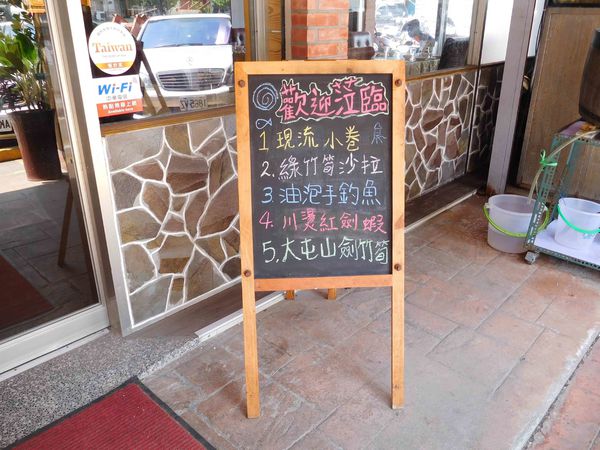 Taiwan
Wi-Fi
歡迎蒞臨
1 現流小卷
2. 綠竹筍沙拉
3. 油泡手釣魚
4. 川燙紅劍蝦
5. 大屯山劍竹筍